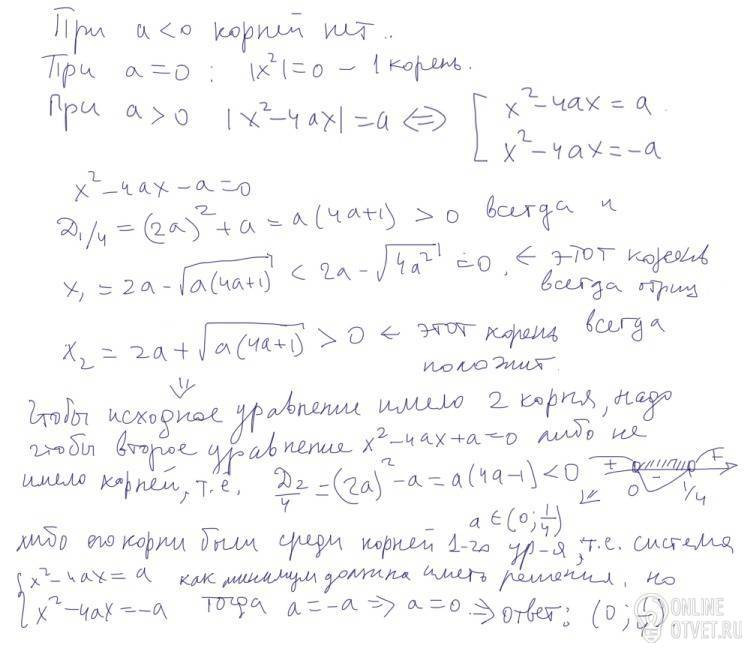 При a<0 корней нет..
При a=0 : |x²|=0 – 1 корень.
При a>0 |x²-4ax|=a ⇔ [ x²-4ax=a
x²-4ax=-a
x²-4ax-a=0
Д₁/4 = (2a)²+a = a(4a+1) > 0 всегда и
x₁ = 2a-√a(4a+1) < 2a-√4a² = 0. ← этот корень
всегда отриц
x₂ = 2a+√a(4a+1) > 0 ← этот корень всегда
положит.
⇓
Чтобы исходное уравнение имело 2 корня, надо
чтобы второе уравнение x²-4ax+a=0 либо не
имело корней, т.е. Д₂/4 = (2a)²-a = a(4a-1) < 0 + - + 0 1/4
a∈(0;1/4)
либо его корни были среди корней 1-го ур-я, т.е. система
{ x²-4ax=a как минимум должна иметь решения, но
x²-4ax=-a тогда a=-a ⇒ a=0. ⇒ ответ: (0;1/4).
ONLINE
OTVET.RU